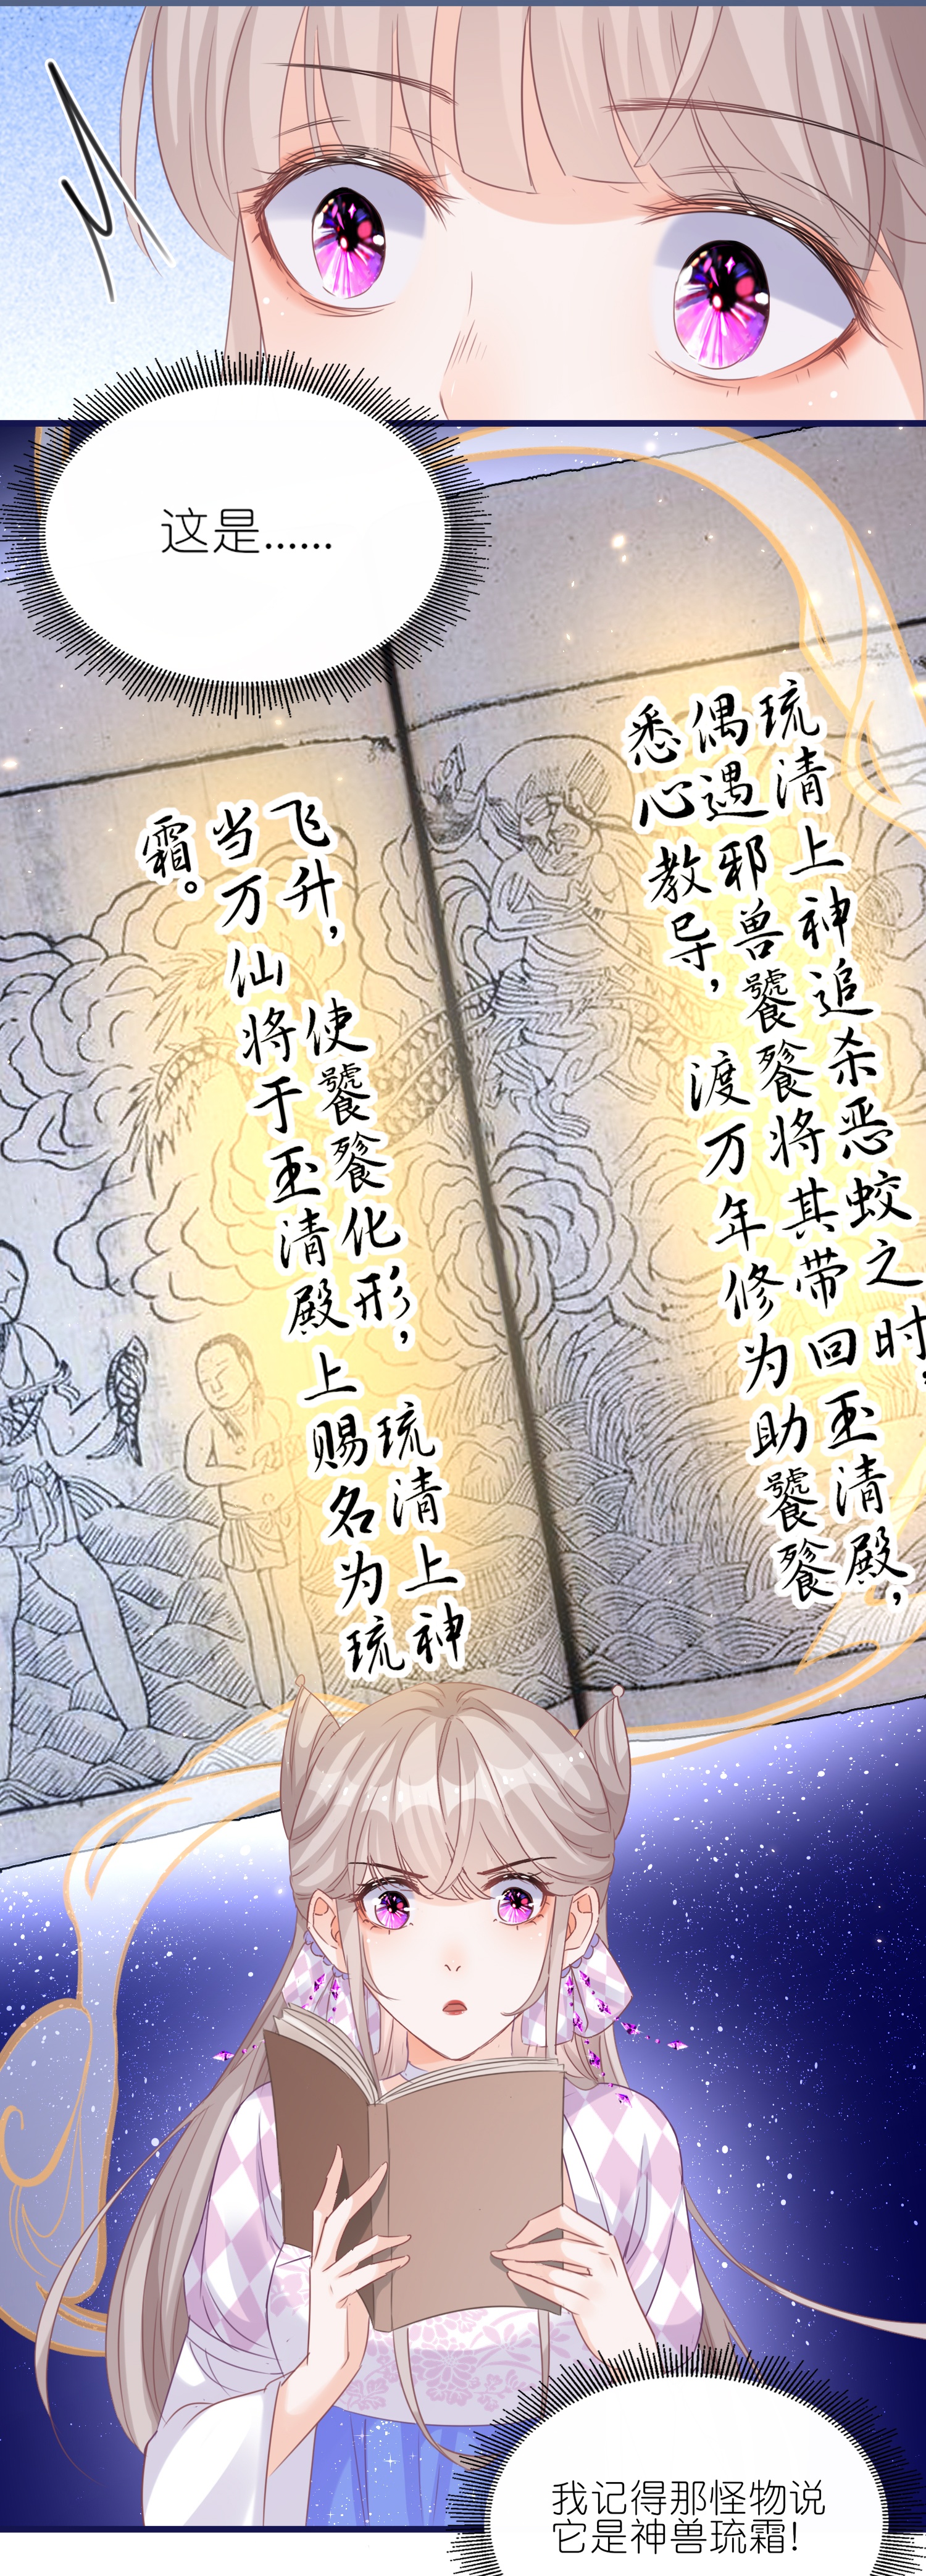 这是......
琉清上神追杀恶蛟之时，
偶遇邪兽饕餮将其带回玉清殿，
悉心教导，渡万年修为助饕餮
飞升，使饕餮化形，琉清上神
当万仙将于玉清殿上赐名为琉
霜。
我记得那怪物说
它是神兽琉霜!